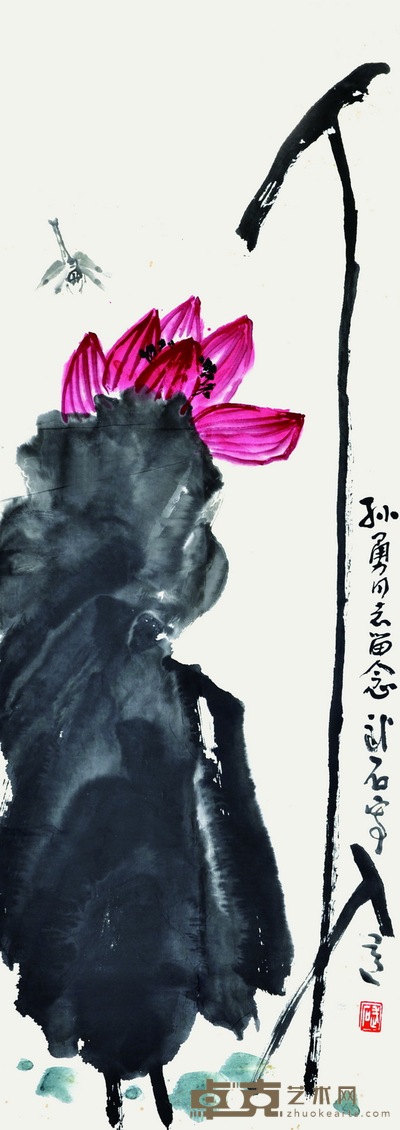 孙勇同志留念 武石写
卓克艺术网
zhuokearts.com